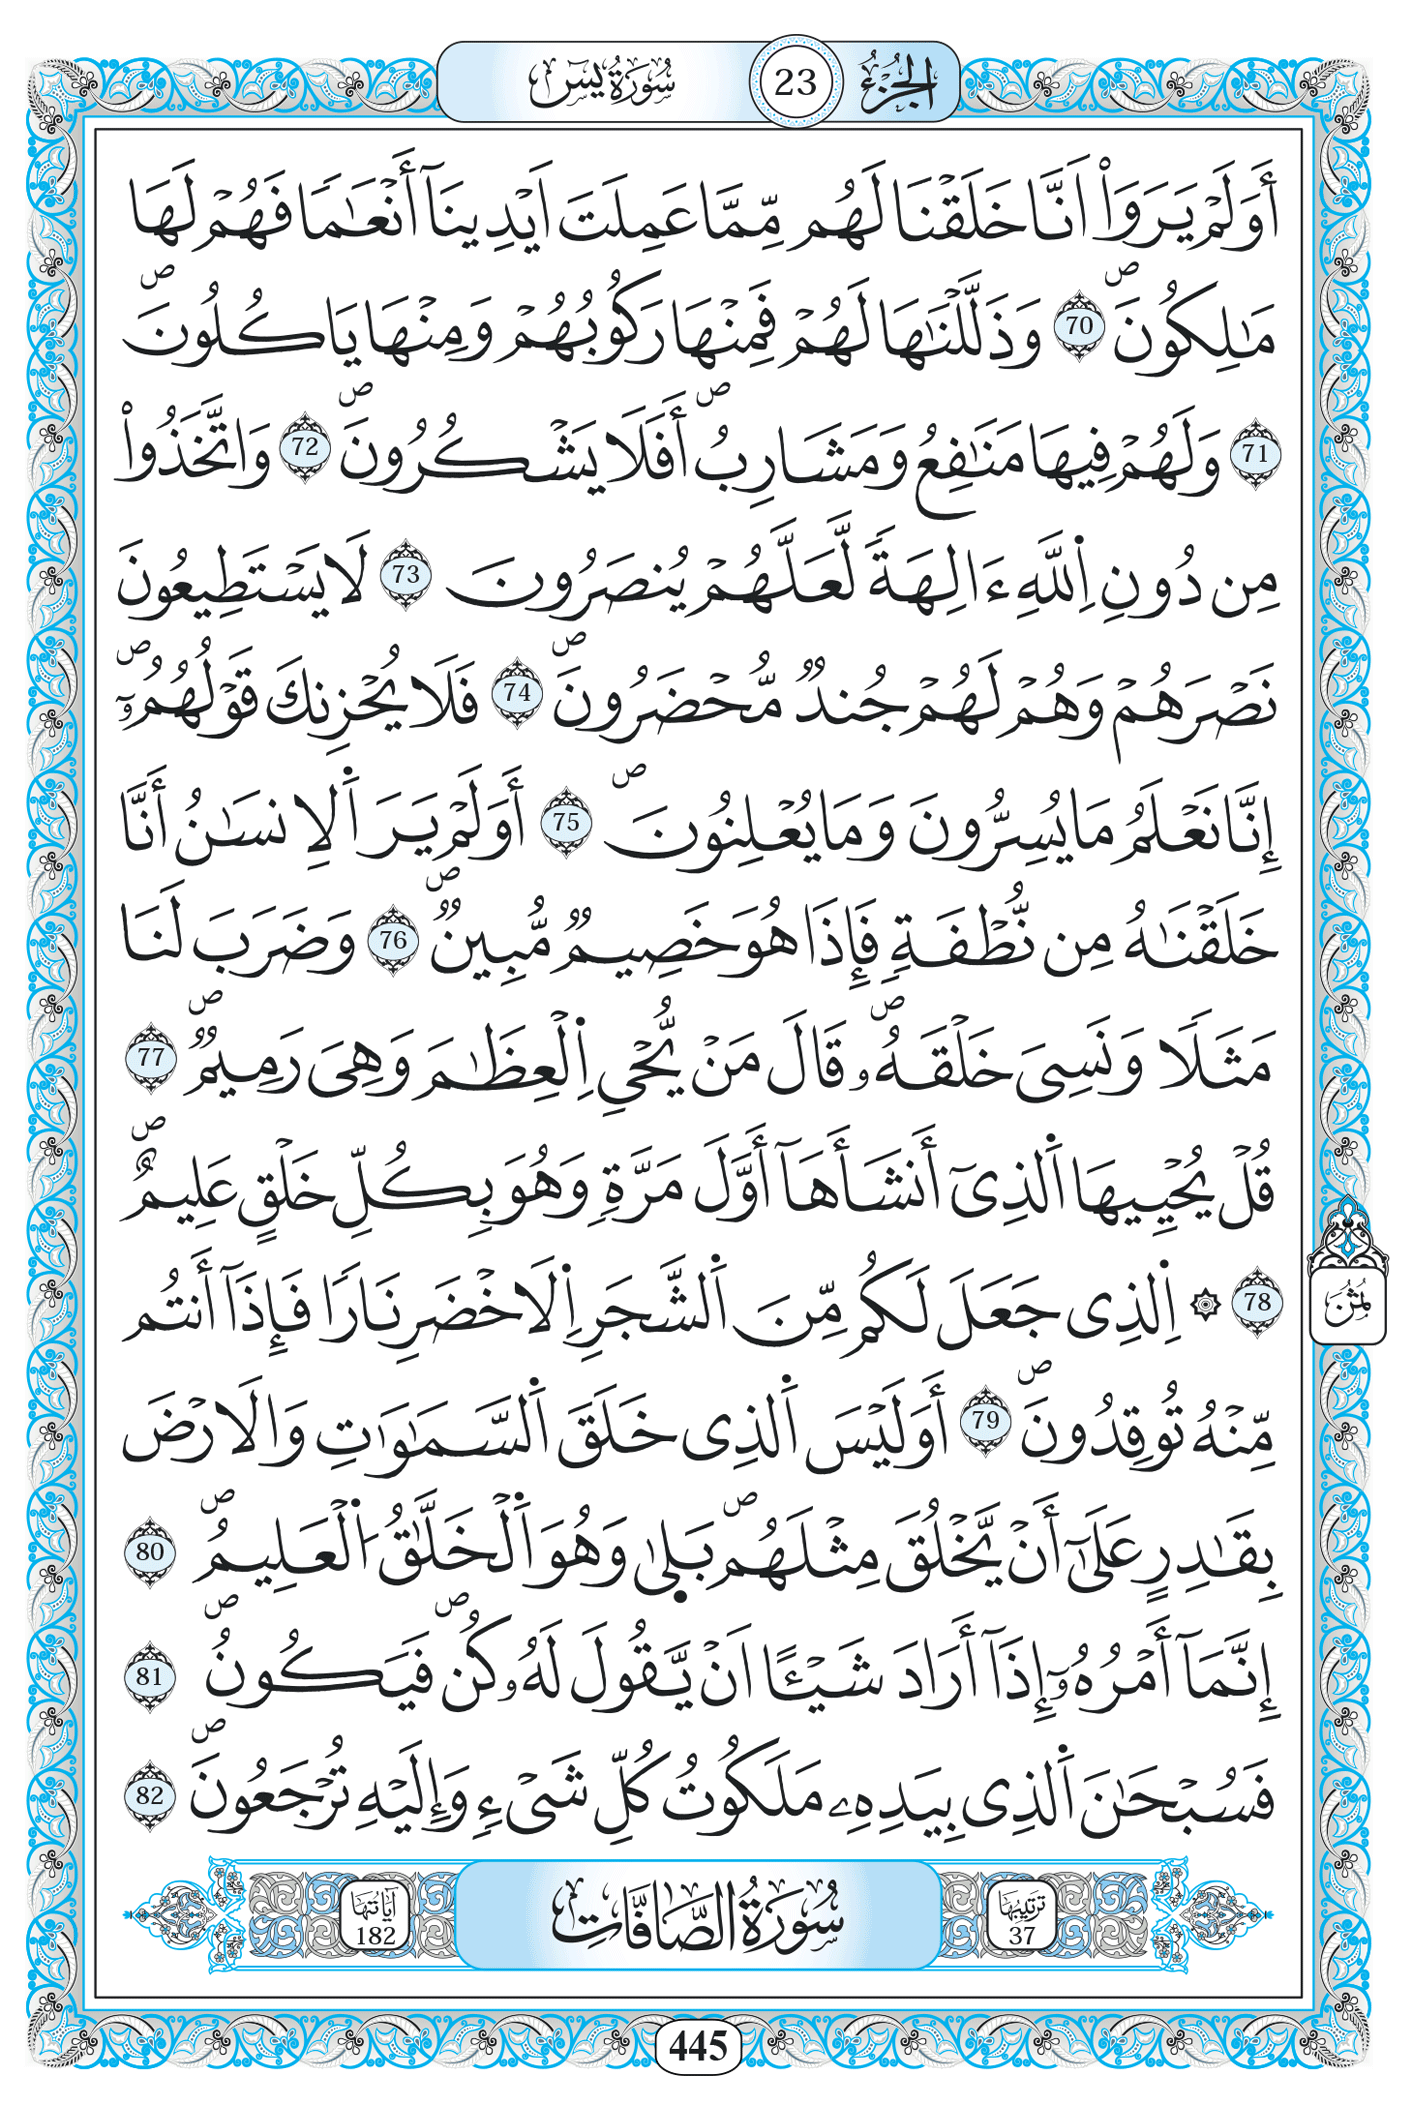 الجزء 23 سورة يس
أَوَلَمْ يَرَوَاْ اَنَّا خَلَقْنَا لَهُم مِّمَّا عَمِلَتَ اَيْدِينَآ أَنْعَٰمًا فَهُمْ لَهَا
مَٰلِكُونَۖ 70 وَذَلَّلْنَٰهَا لَهُمْ فَمِنْهَا رَكُوبُهُمْ وَمِنْهَا يَاكُلُونَۖ
71 وَلَهُمْ فِيهَا مَنَٰفِعُ وَمَشَارِبُۖ أَفَلَا يَشْكُرُونَۖ 72 وَاتَّخَذُواْ
مِن دُونِ اِ۬للَّهِ ءَالِهَةً لَّعَلَّهُمْ يُنصَرُونَ 73 لَا يَسْتَطِيعُونَ
نَصْرَهُمْ وَهُمْ لَهُمْ جُندٌ مُّحْضَرُونَۖ 74 فَلَا يُحْزِنكَ قَوْلُهُمُۥٓۖ
إِنَّا نَعْلَمُ مَا يُسِرُّونَ وَمَا يُعْلِنُونَۖ 75 أَوَلَمْ يَرَ اَ۬لِانسَٰنُ أَنَّا
خَلَقْنَٰهُ مِن نُّطْفَةٍ فَإِذَا هُوَ خَصِيمٌ مُّبِينٌۖ 76 وَضَرَبَ لَنَا
مَثَلًا وَنَسِيَ خَلْقَهُۥۖ قَالَ مَنْ يُّحْيِ اِ۬لْعِظَٰمَ وَهِيَ رَمِيمٌۖ 77
قُلْ يُحْيِيهَا اَ۬لذِىٓ أَنشَأَهَآ أَوَّلَ مَرَّةٍ وَهُوَ بِكُلِّ خَلْقٍ عَلِيمٌۖ
78 ۞ اِ۬لذِى جَعَلَ لَكُم مِّنَ اَ۬لشَّجَرِ اِ۬لَاخْضَرِ نَارًا فَإِذَآ أَنتُم
مِّنْهُ تُوقِدُونَۖ 79 أَوَلَيْسَ اَ۬لذِى خَلَقَ اَ۬لسَّمَٰوَٰتِ وَالَارْضَ
بِقَٰدِرٍ عَلَىٰٓ أَنْ يَّخْلُقَ مِثْلَهُمۖ بَلٜىٰ وَهُوَ اَ۬لْخَلَّٰقُ اُ۬لْعَلِيمُۖ 80
إِنَّمَآ أَمْرُهُۥٓ إِذَآ أَرَادَ شَيْـًٔا اَنْ يَّقُولَ لَهُۥ كُنۖ فَيَكُونُۖ 81
فَسُبْحَٰنَ اَ۬لذِى بِيَدِهِۦ مَلَكُوتُ كُلِّ شَىْءٍ وَإِلَيْهِ تُرْجَعُونَۖ 82
ثمن
ترتيبها 37 سُورَةُ الصَّافَّاتِ آياتها 182
445